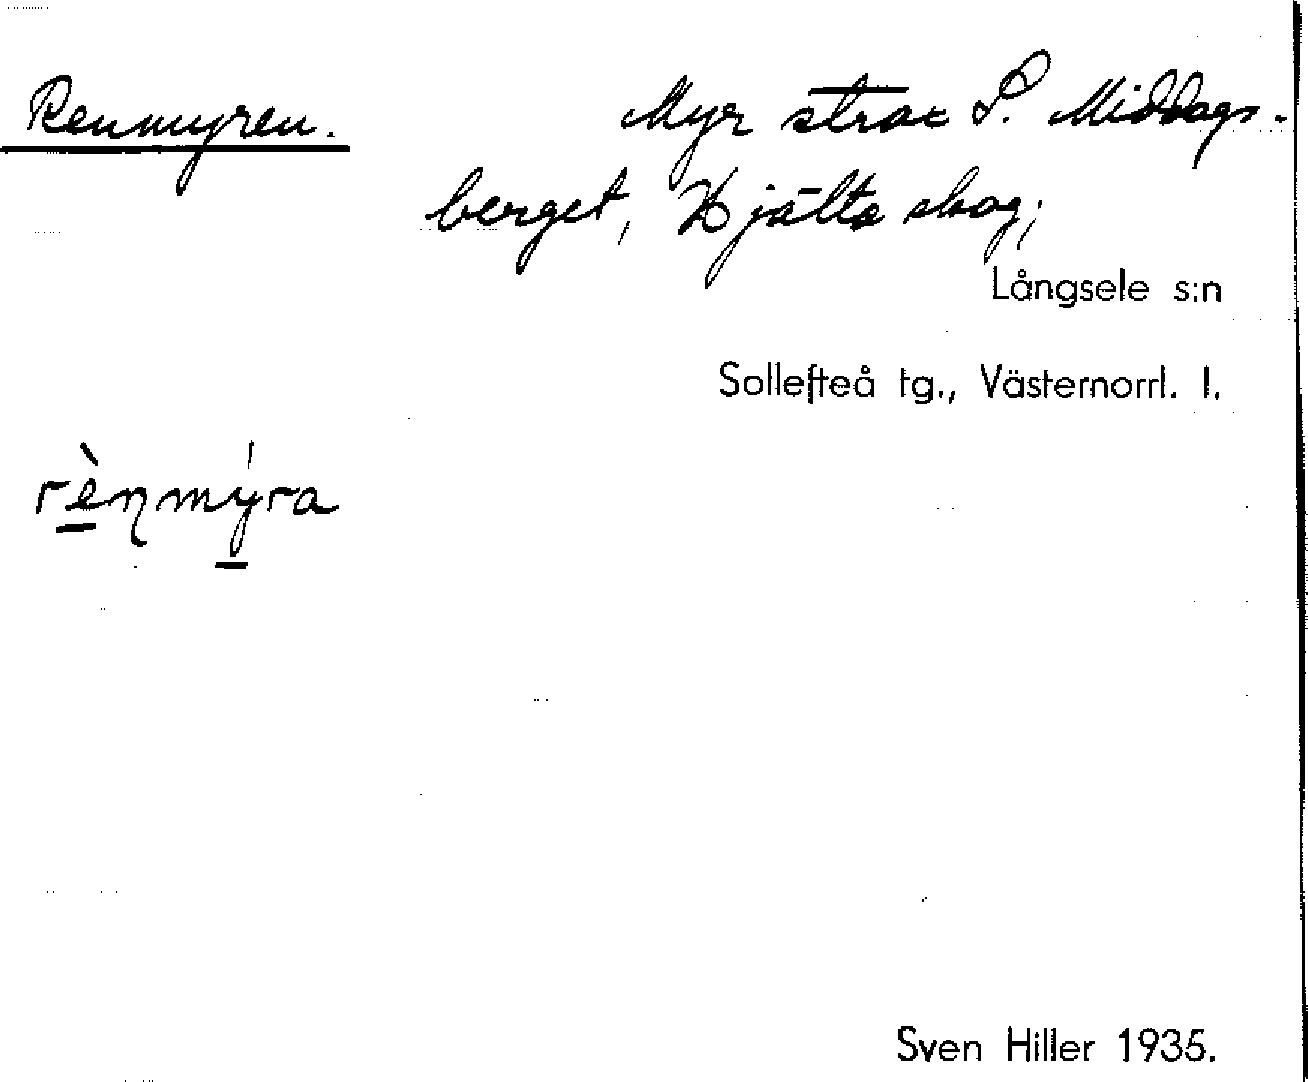 Renmyren.
Myr strax S. Middags-
berget, Hjälta skog;
Långsele s:n
Sollefteå tg., Västernorrl. l.
rènmy̍ra
Sven Hiller 1935.